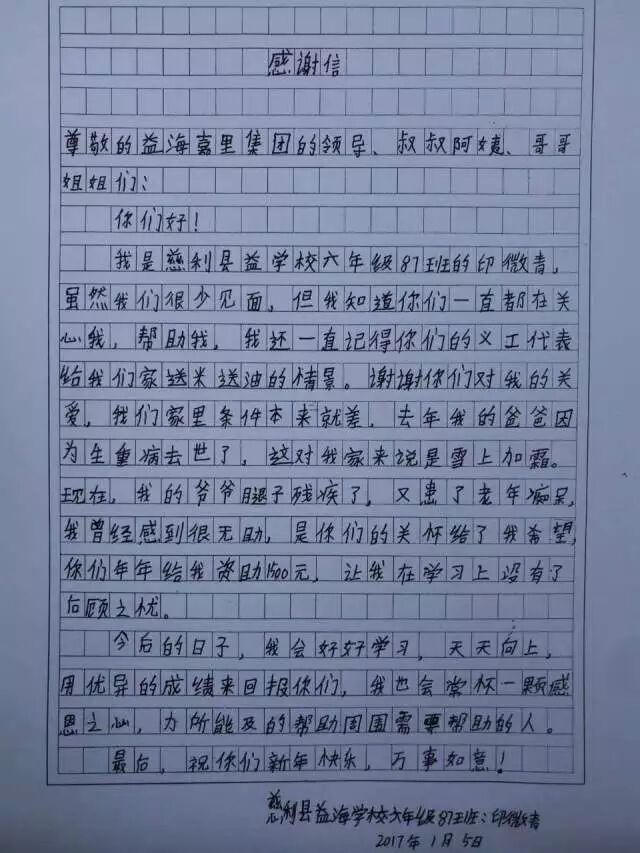 感谢信
尊敬的益海嘉里集团的领导、叔叔阿姨、哥哥
姐姐们：
你们好！
我是慈利县益学校六年级87班的印微青，
虽然我们很少见面，但我知道你们一直都在关
心我，帮助我，我还一直记得你们的义工代表
给我们家送米送油的情景。谢谢你们对我的关
爱，我们家里条件本来就差，去年我的爸爸因
为生重病去世了，这对我家来说是雪上加霜。
现在，我的爷爷腿子残疾了，又患了老年痴呆，
我曾经感到很无助，是你们的关怀给了我希望，
你们年年给我资助1500元，让我在学习上没有了
后顾之忧。
今后的日子，我会好好学习，天天向上，
用优异的成绩来回报你们，我也会常怀一颗感
恩之心，力所能及的帮助周围需要帮助的人。
最后，祝你们新年快乐，万事如意！
慈利县益海学校六年级87班：印微青
2017年1月5日